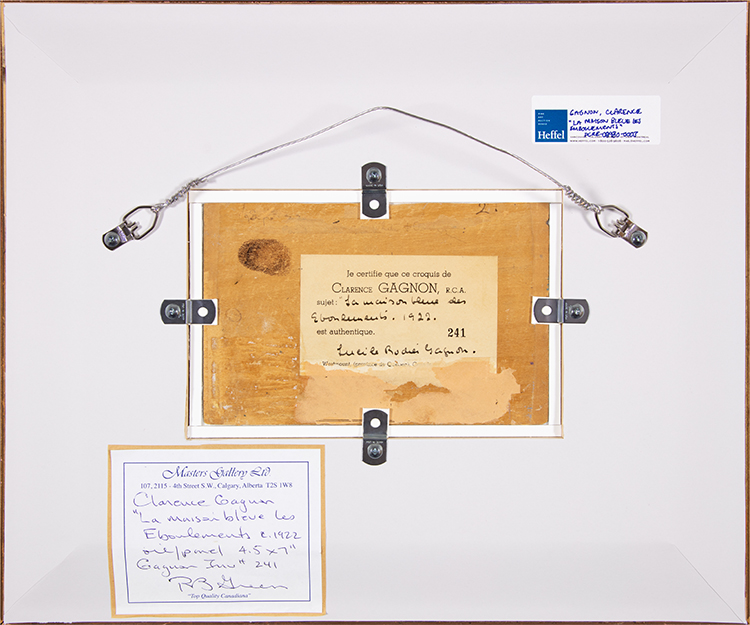 Heffel
GAGNON, CLARENCE
"LA MAISON BLEUE LES
EBOULEMENTS"
2.
Je certifie que ce croquis de
CLARENCE GAGNON, R.C.A.
sujet: "La maison bleue des
Eboulements. 1922.
est authentique. 241
Lucile Rodier Gagnon.
Westmount, province de
Masters Gallery Ltd
107, 2115 - 4th Street S.W., Calgary, Alberta T2S 1W8
Clarence Gagnon
"La maison bleue les
Eboulements c.1922
oil/panel 4.5 x 7"
Gagnon Inv # 241
RB Green
"Top Quality Canadiana"